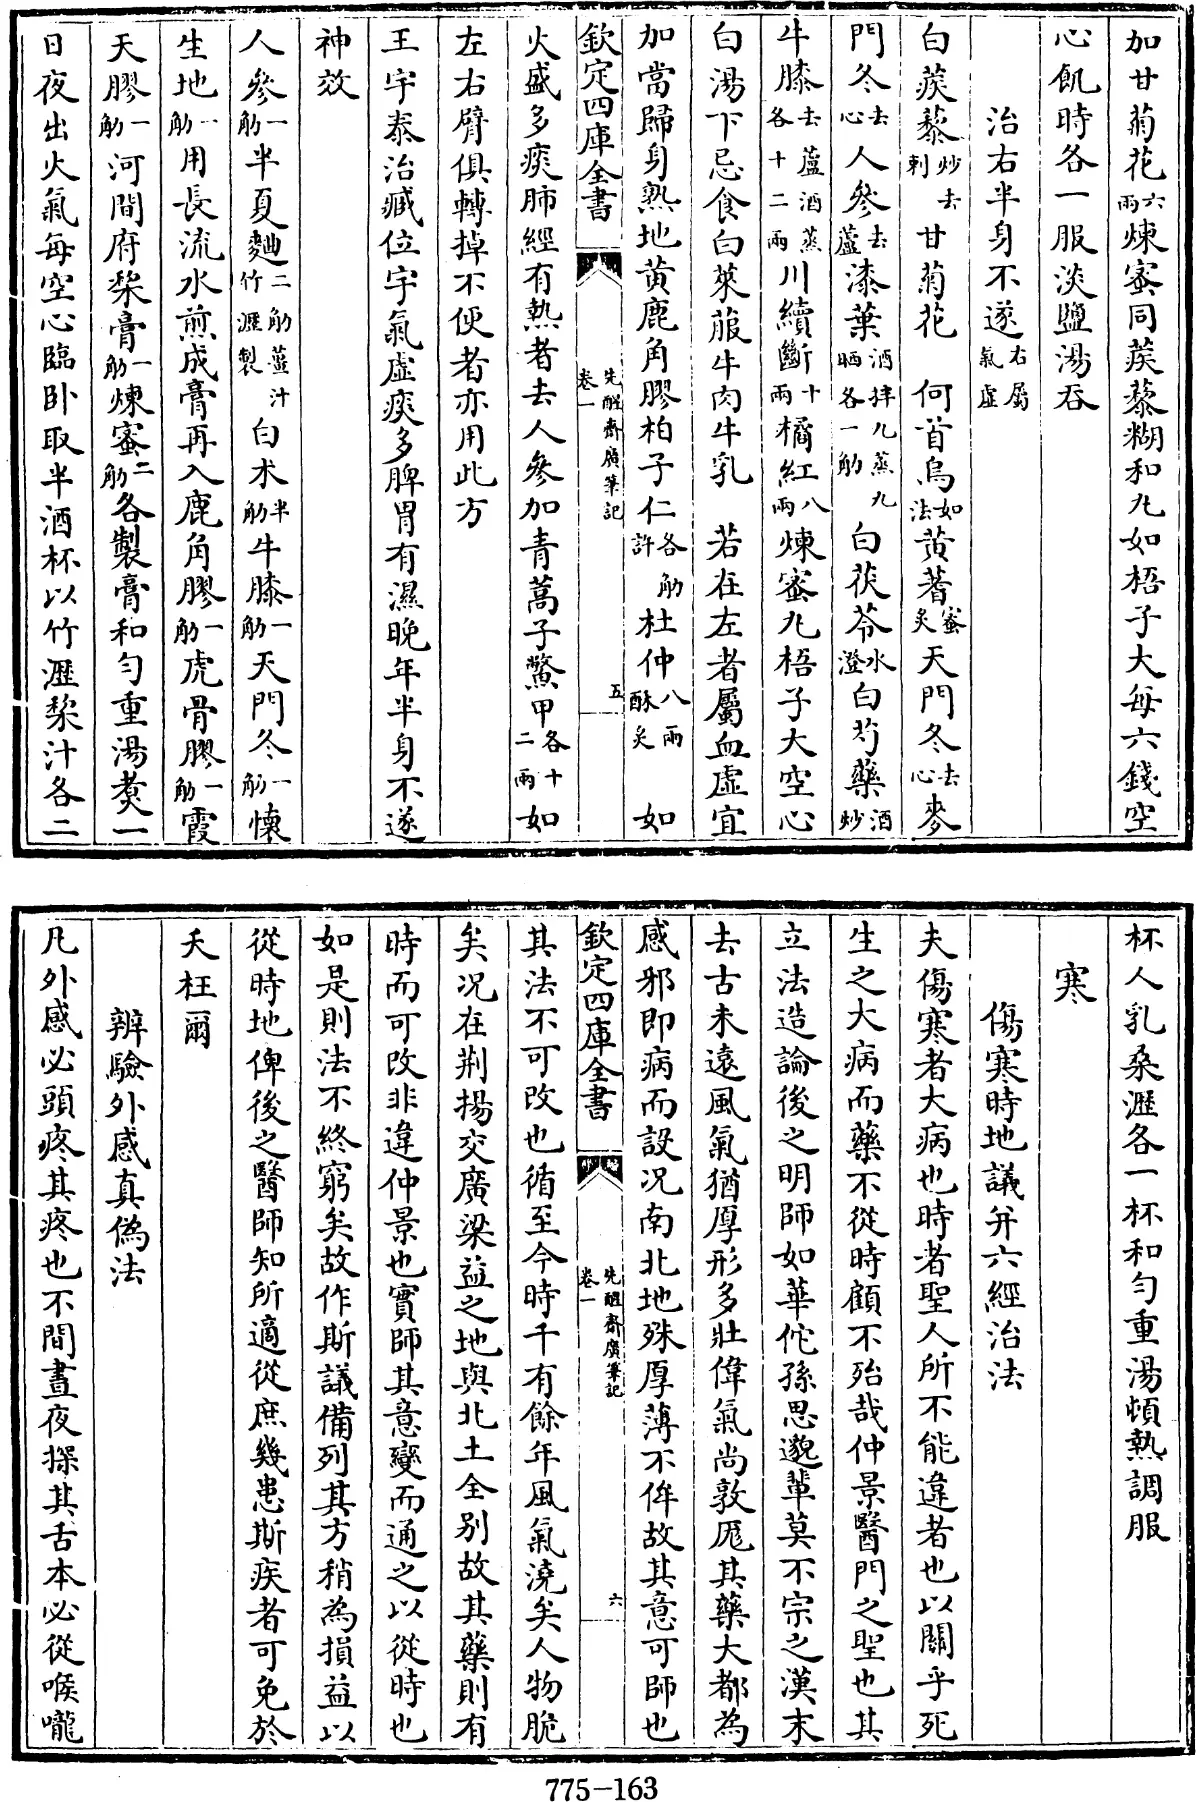 加甘菊花六兩煉蜜同蒺藜糊和丸如梧子大每六錢空
心飢時各一服淡鹽湯吞
治右半身不遂右屬氣虛
白蒺藜炒去刺甘菊花 何首烏如法黃蓍蜜炙天門冬去心麥
門冬去心人參去蘆漆葉酒拌九蒸九晒各一觔白茯苓水澄白芍藥酒炒
牛膝去蘆酒蒸各十二兩川續斷十兩橘紅八兩煉蜜丸梧子大空心
白湯下忌食白萊菔牛肉牛乳 若在左者屬血虛宜
加當歸身熟地黃鹿角膠柏子仁各觔許杜仲八兩酥炙 如
欽定四庫全書
先醒齋廣筆記
卷一
五
火盛多痰肺經有熱者去人參加青蒿子鱉甲各十二兩如
左右臂俱轉掉不便者亦用此方
王宇泰治臧位宇氣虛痰多脾胃有濕晚年半身不遂
神效
人參一觔半夏麯二觔薑汁竹瀝製白朮半觔牛膝一觔天門冬一觔懷
生地一觔用長流水煎成膏再入鹿角膠一觔虎骨膠一觔霞
天膠一觔河間府梨膏一觔煉蜜二觔各製膏和勻重湯煑一
日夜出火氣每空心臨臥取半酒杯以竹瀝梨汁各二
杯人乳桑瀝各一杯和勻重湯頓熱調服
寒
傷寒時地議并六經治法
夫傷寒者大病也時者聖人所不能違者也以關乎死
生之大病而藥不從時顧不殆哉仲景醫門之聖也其
立法造論後之明師如華佗孫思邈輩莫不宗之漢末
去古未遠風氣猶厚形多壯偉氣尚敦厖其藥大都為
感邪即病而設況南北地殊厚薄不侔故其意可師也
欽定四庫全書
先醒齋廣筆記
卷一
六
其法不可改也循至今時千有餘年風氣澆矣人物脆
矣況在荆揚交廣梁益之地與北土全別故其藥則有
時而可改非違仲景也實師其意變而通之以從時也
如是則法不終窮矣故作斯議備列其方稍為損益以
從時地俾後之醫師知所適從庶幾患斯疾者可免於
夭枉爾
辨驗外感真偽法
凡外感必頭疼其疼也不間晝夜探其舌本必從喉嚨
775-163